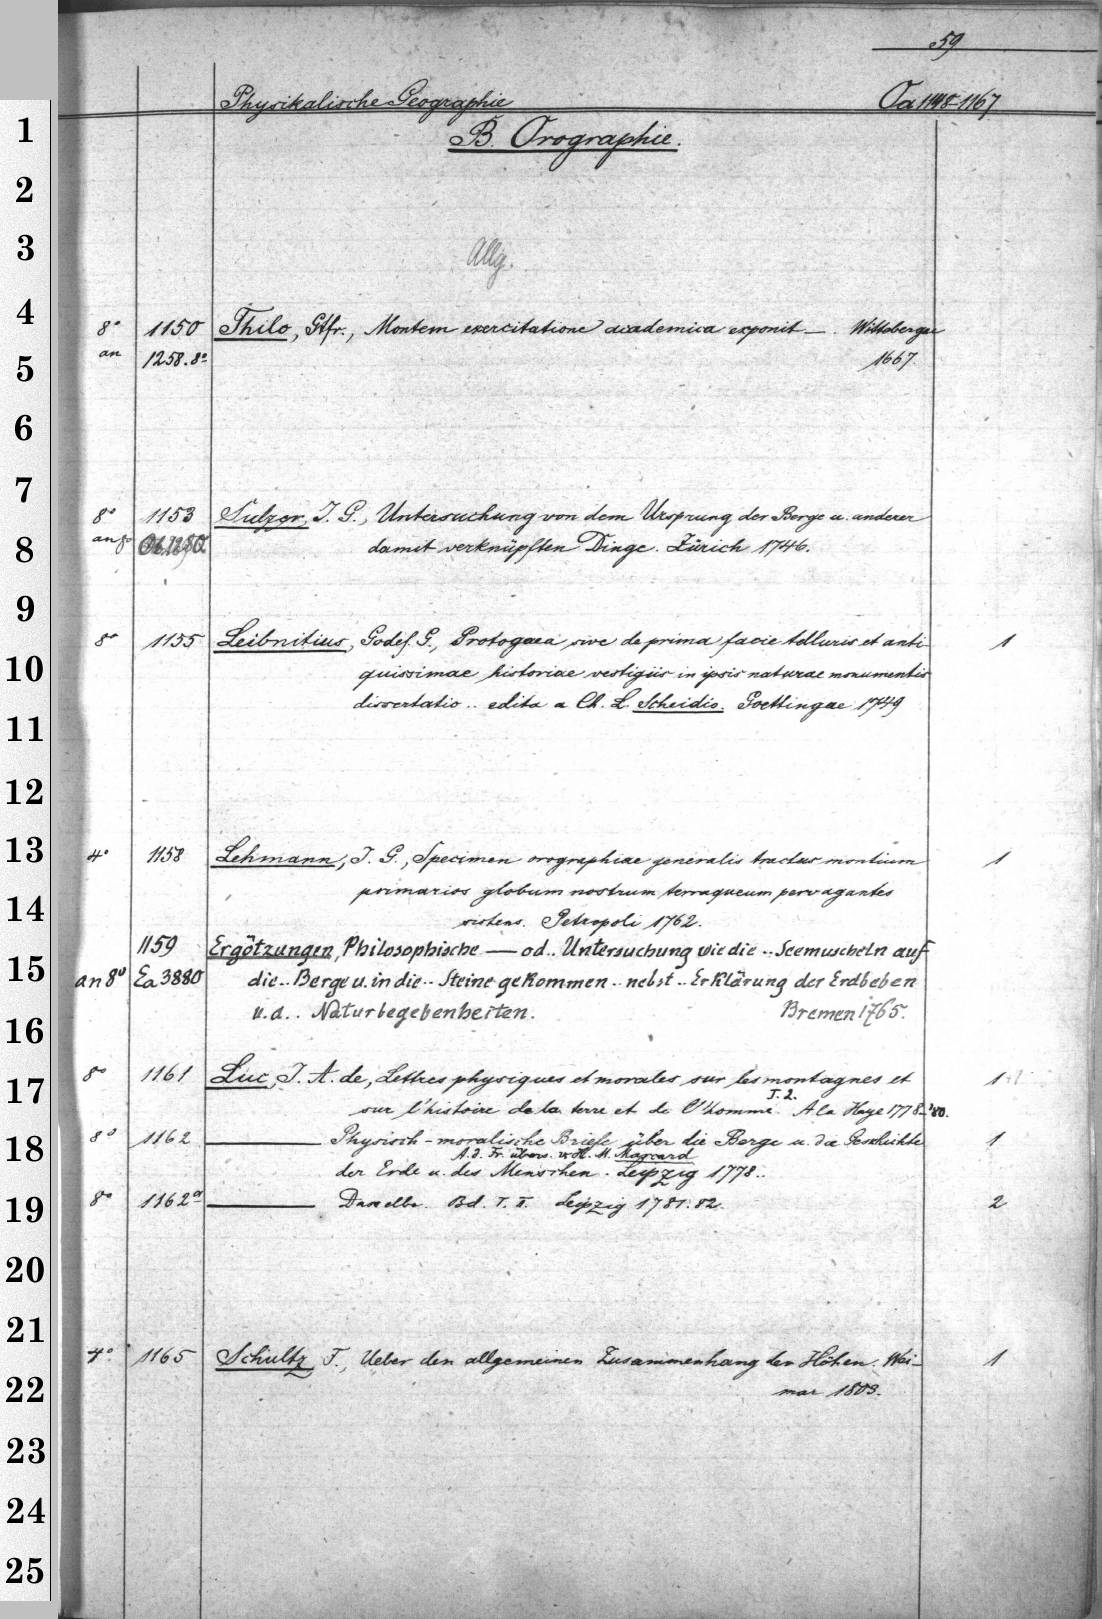 59
Physikalische Geographie Oa 1148-1167
1 B. Orographie.
2
3 Allg.
4 8° 1150 Thilo, Gtfr., Montem exercitatione academica exponit —. Wittebergae
5 an 1258.8° 1667.
6
7 8° 1153 Sulzer, J. G., Untersuchung von dem Ursprung der Berge u. anderer
8 an 8° damit verknüpften Dinge. Zürich 1746.
9
10 8° 1155 Leibnitius, Godef. G., Protogaea sive de prima facie telluris et anti- 1
quissimae historiae vestigiis in ipsis naturae monumentis
11 dissertatio .. edita a Ch. L. Scheidio. Goettingae 1749
12
13 4° 1158 Lehmann, J. G., Specimen orographiae generalis tractus montium 1
14 primarios globum nostrum terraqueum pervagantes
sistens. Petropoli 1762.
1159 Ergötzungen, Philosophische — od.. Untersuchung wie die .. Seemuscheln auf
15 an 8° Ea 3880 die .. Berge u. in die .. Steine gekommen .. nebst .. Erklärung der Erdbeben
16 u. a. . Naturbegebenheiten. Bremen 1765.
17 8° 1161 Luc, J. A. de, Lettres physiques et morales sur les montagnes et 1
T. 2.
sur l'histoire de la terre et de l'homme. A la Haye 1778-'80.
18 8° 1162 ——— Physisch-moralische Briefe über die Berge u. die Geschichte 1
A. d. Fr. übers. v. H. M. Marcard
der Erde u. des Menschen. Leipzig 1778..
19 8° 1162a ——— Dasselbe. Bd. I. II. Leipzig 1781. 82. 2
20
21
4° 1165 Schultz F., Ueber den allgemeinen Zusammenhang der Höhen. Wei- 1
22 mar 1803.
23
24
25